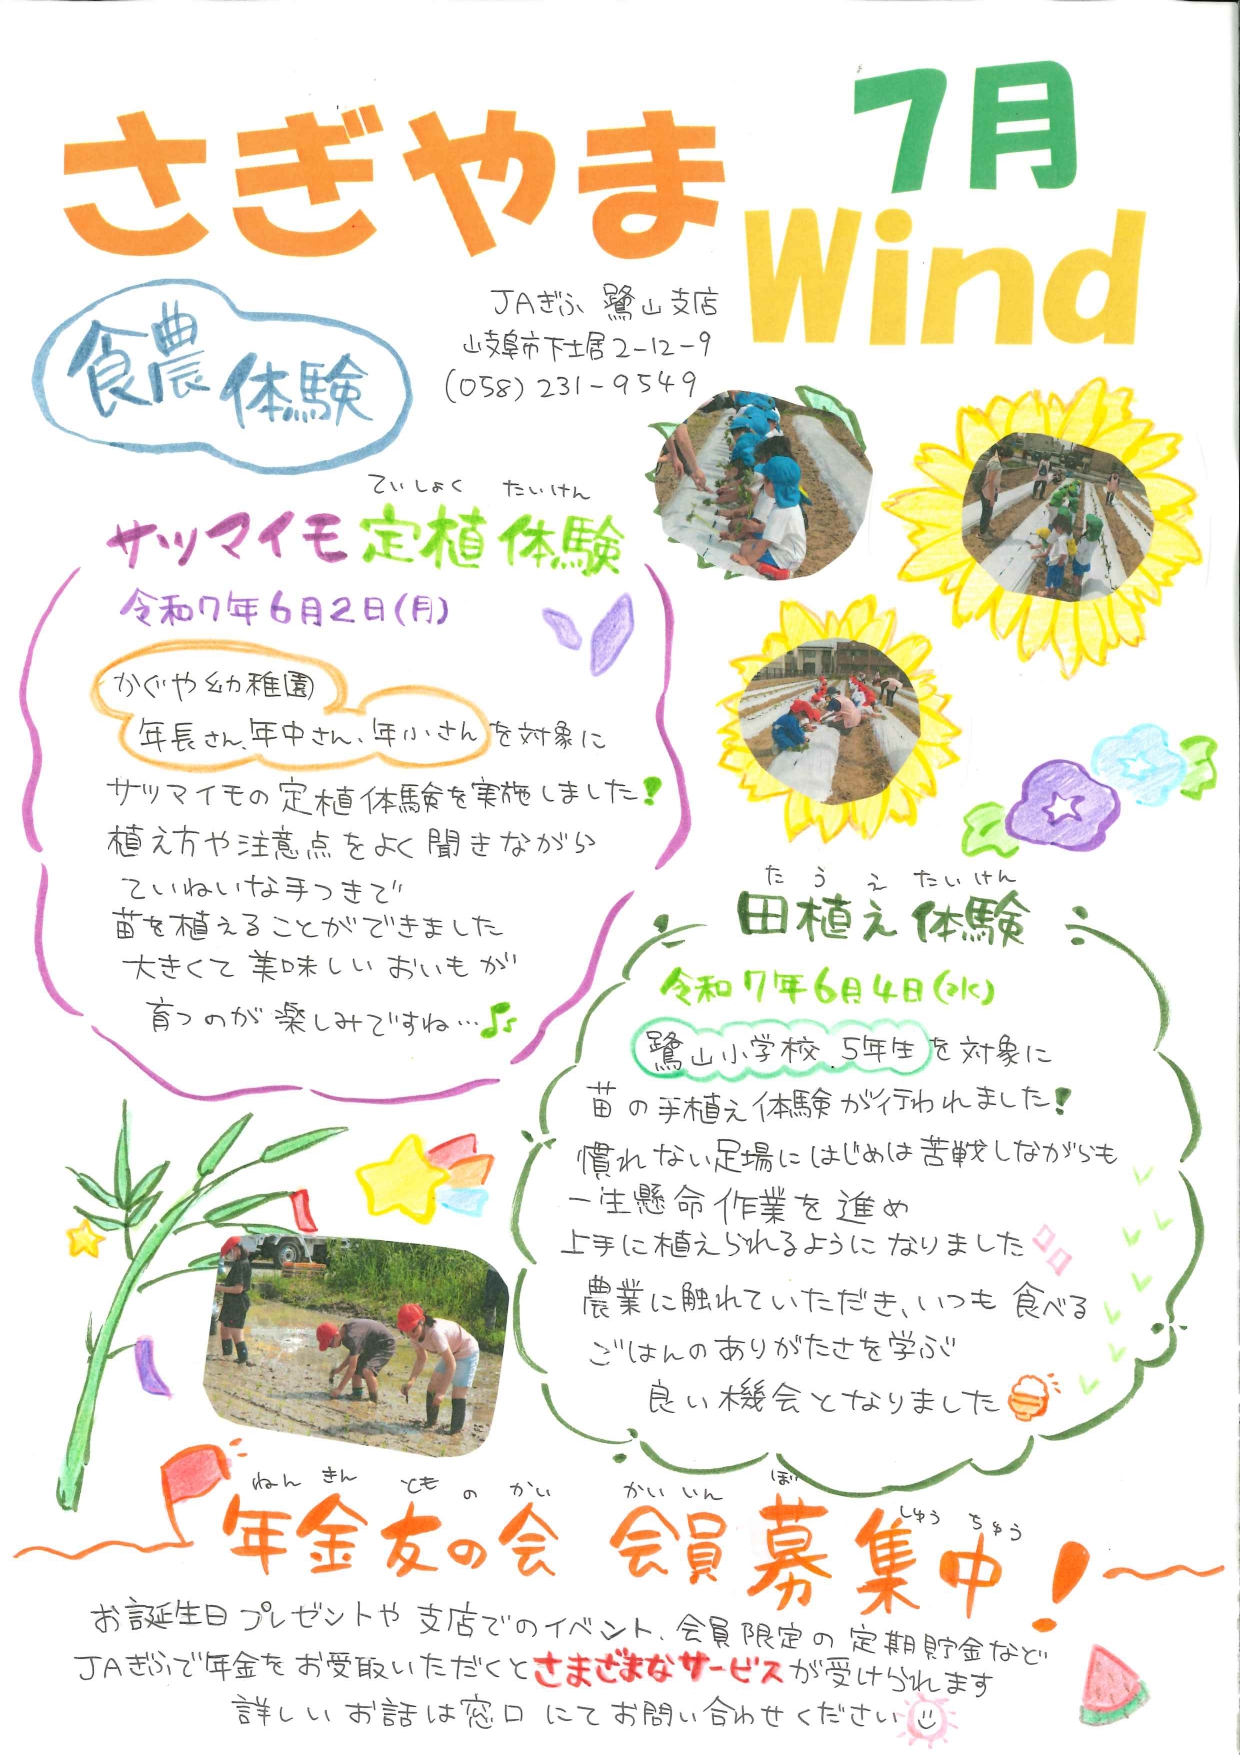 さぎやま
7月
Wind
食農体験
JAぎふ 鷺山支店
岐阜市下土居2-12-9
(058)231-9549
ていしょく たいけん
サツマイモ定植体験
令和7年6月2日(月)
かぐや幼稚園
年長さん、年中さん、年小さんを対象に
サツマイモの定植体験を実施しました!
植え方や注意点をよく聞きながら
ていねいな手つきで
苗を植えることができました
大きくて美味しいおいもが
育つのが楽しみですね…♪
た う え たいけん
田植え体験
令和7年6月4日(水)
鷺山小学校 5年生を対象に
苗の手植え体験が行われました!
慣れない足場にはじめは苦戦しながらも
一生懸命作業を進め
上手に植えられるようになりました
農業に触れていただき、いつも食べる
ごはんのありがたさを学ぶ
良い機会となりました
ねん きん とも の かい かい いん ぼ しゅう ちゅう
年金友の会 会員募集中!
お誕生日プレゼントや支店でのイベント、会員限定の定期貯金など
JAぎふで年金をお受取いただくとさまざまなサービスが受けられます
詳しいお話は窓口にてお問い合わせください